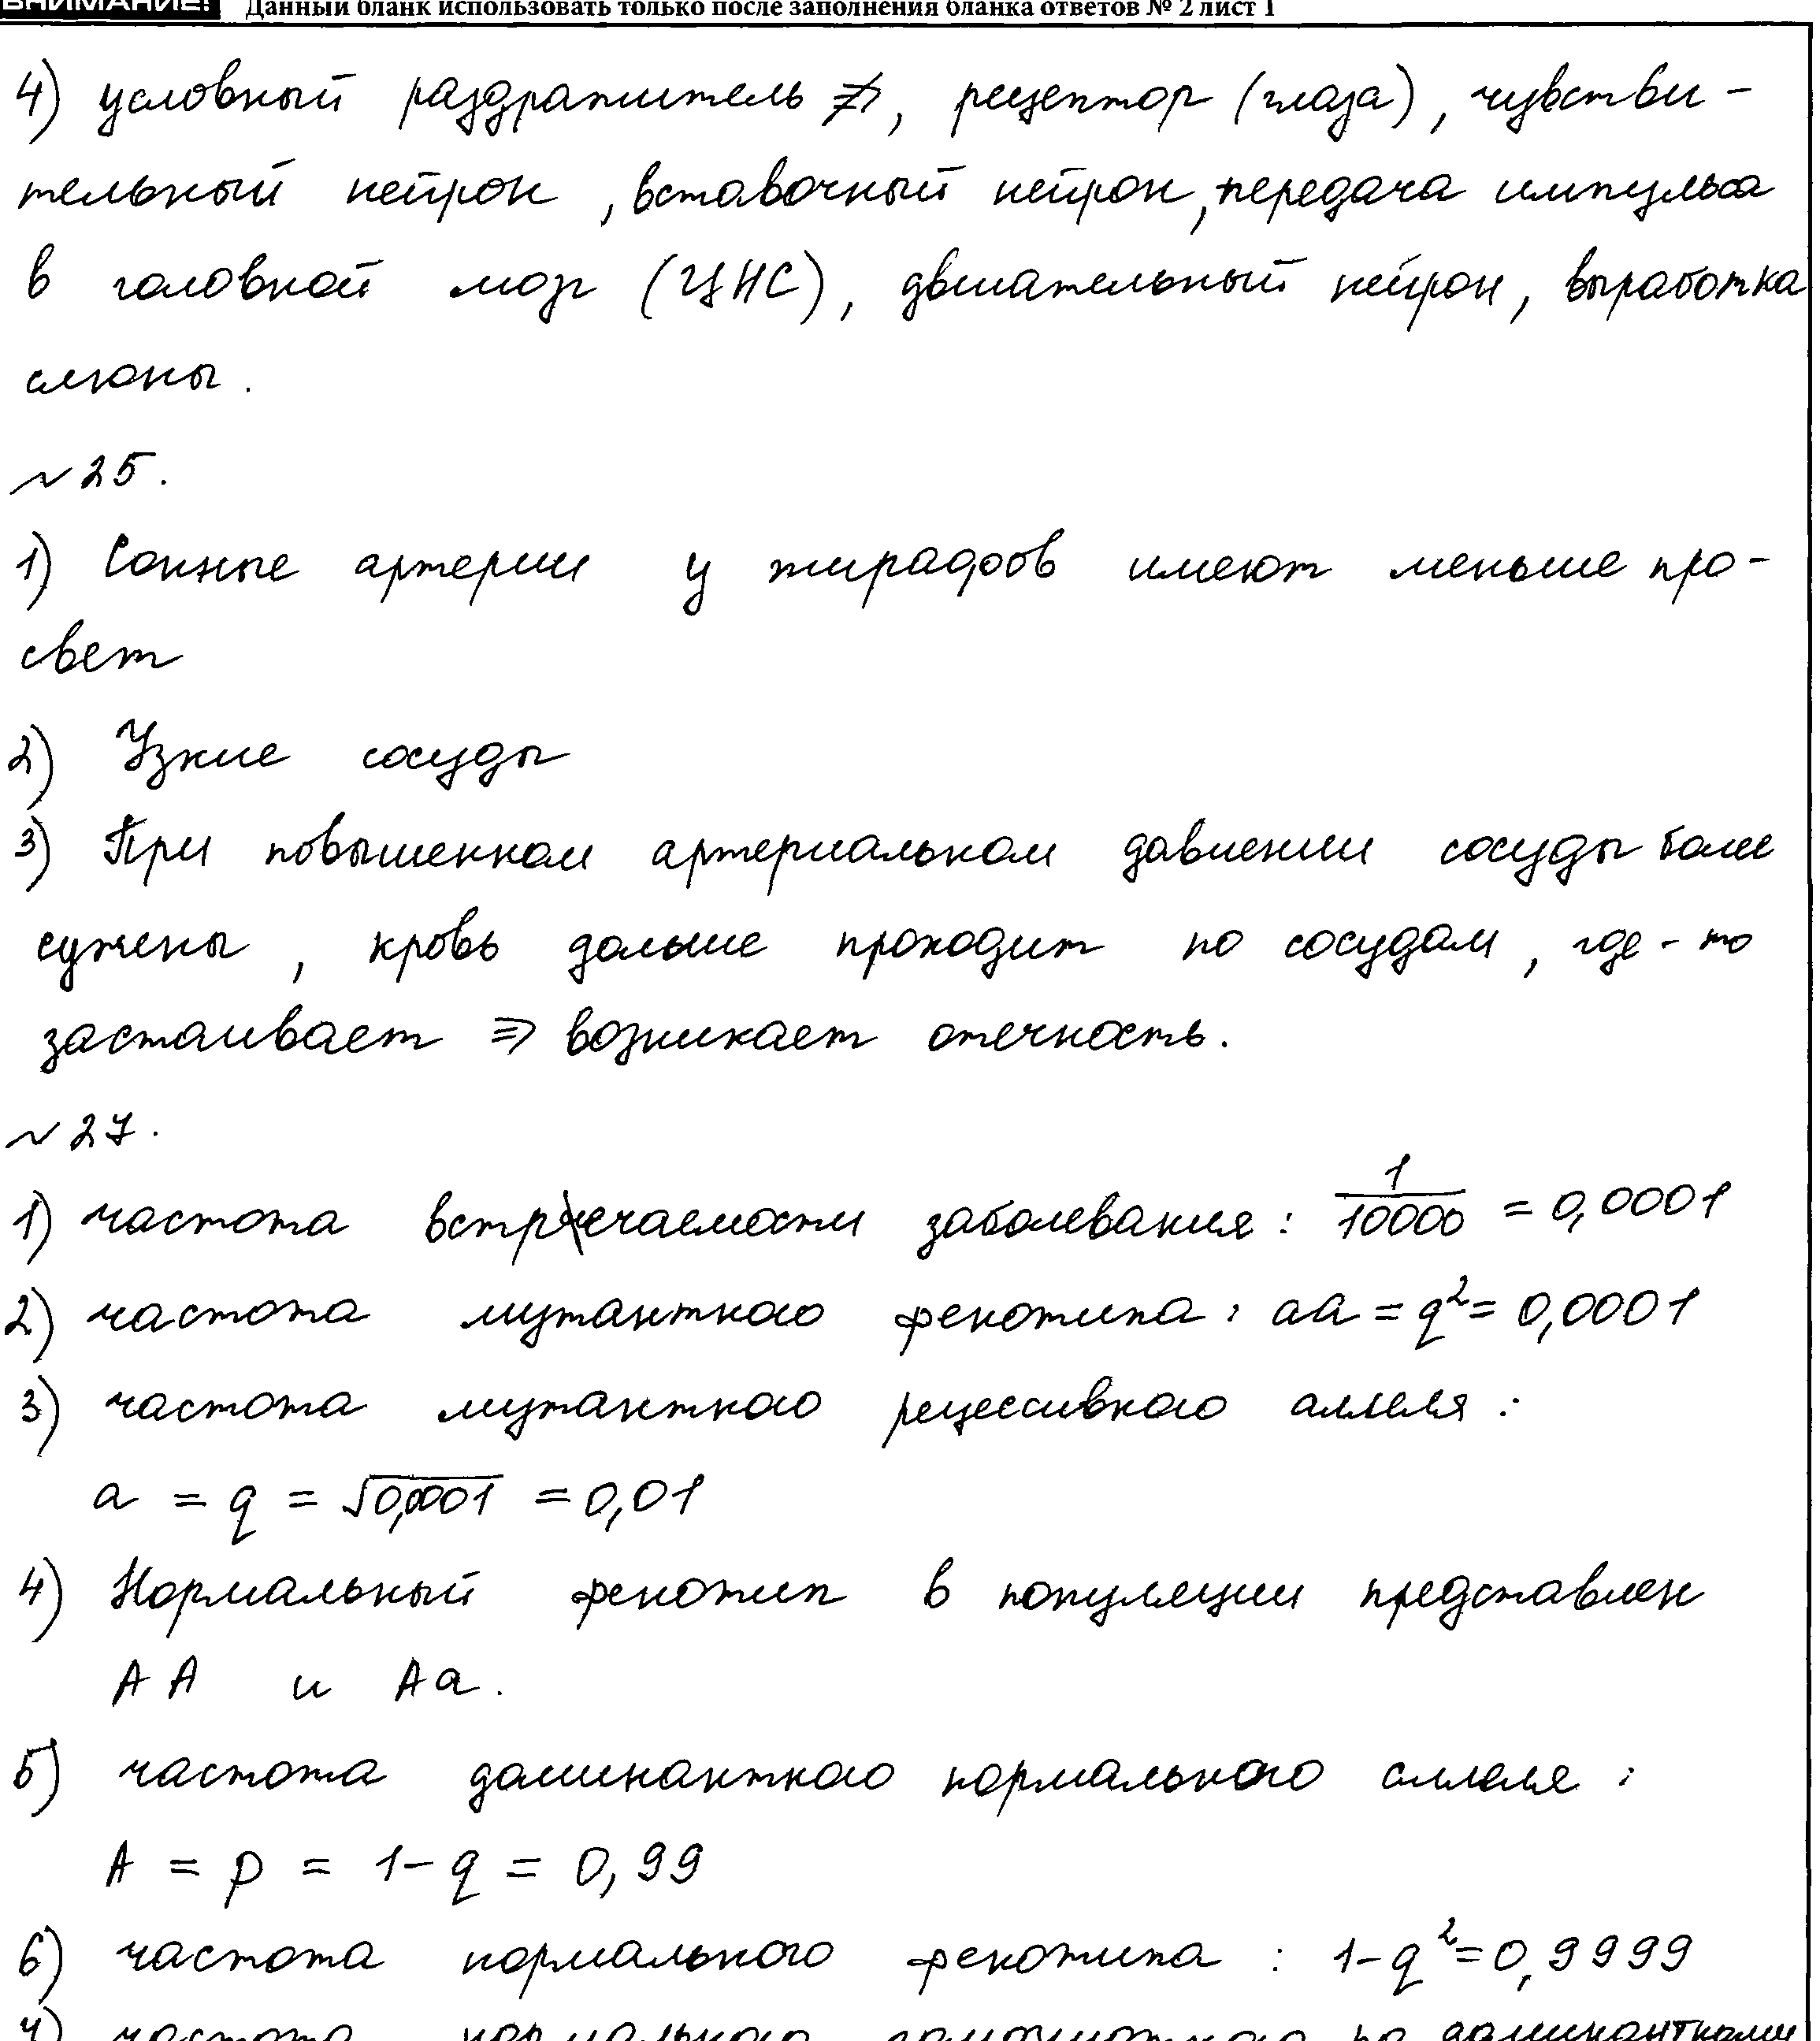 ВНИМАНИЕ! Данный бланк использовать только после заполнения бланка ответов № 2 лист 1
4) условный раздражитель, рецептор (глаза), чувстви-
тельный нейрон, вставочный нейрон, передача импульса
в головной мозг (ЦНС), двигательный нейрон, выработка
слюны.
№25.
1) Сонные артерии у жирафов имеют меньше про-
свет
2) Узкие сосуды
3) При повышенном артериальном давлении сосуды более
сужены, кровь дольше проходит по сосудам, где-то
застаивает ⇒ возникает отечность.
№27.
1) частота встречаемости заболевания: 1/10000 = 0,0001
2) частота мутантного фенотипа: aa = q² = 0,0001
3) частота мутантного рецессивного аллеля:
a = q = √0,0001 = 0,01
4) Нормальный фенотип в популяции представлен
AA и Aa.
5) частота доминантного нормального аллеля:
A = p = 1-q = 0,99
6) частота нормального фенотипа: 1-q² = 0,9999
7) частота нормального гомозиготного по доминантными